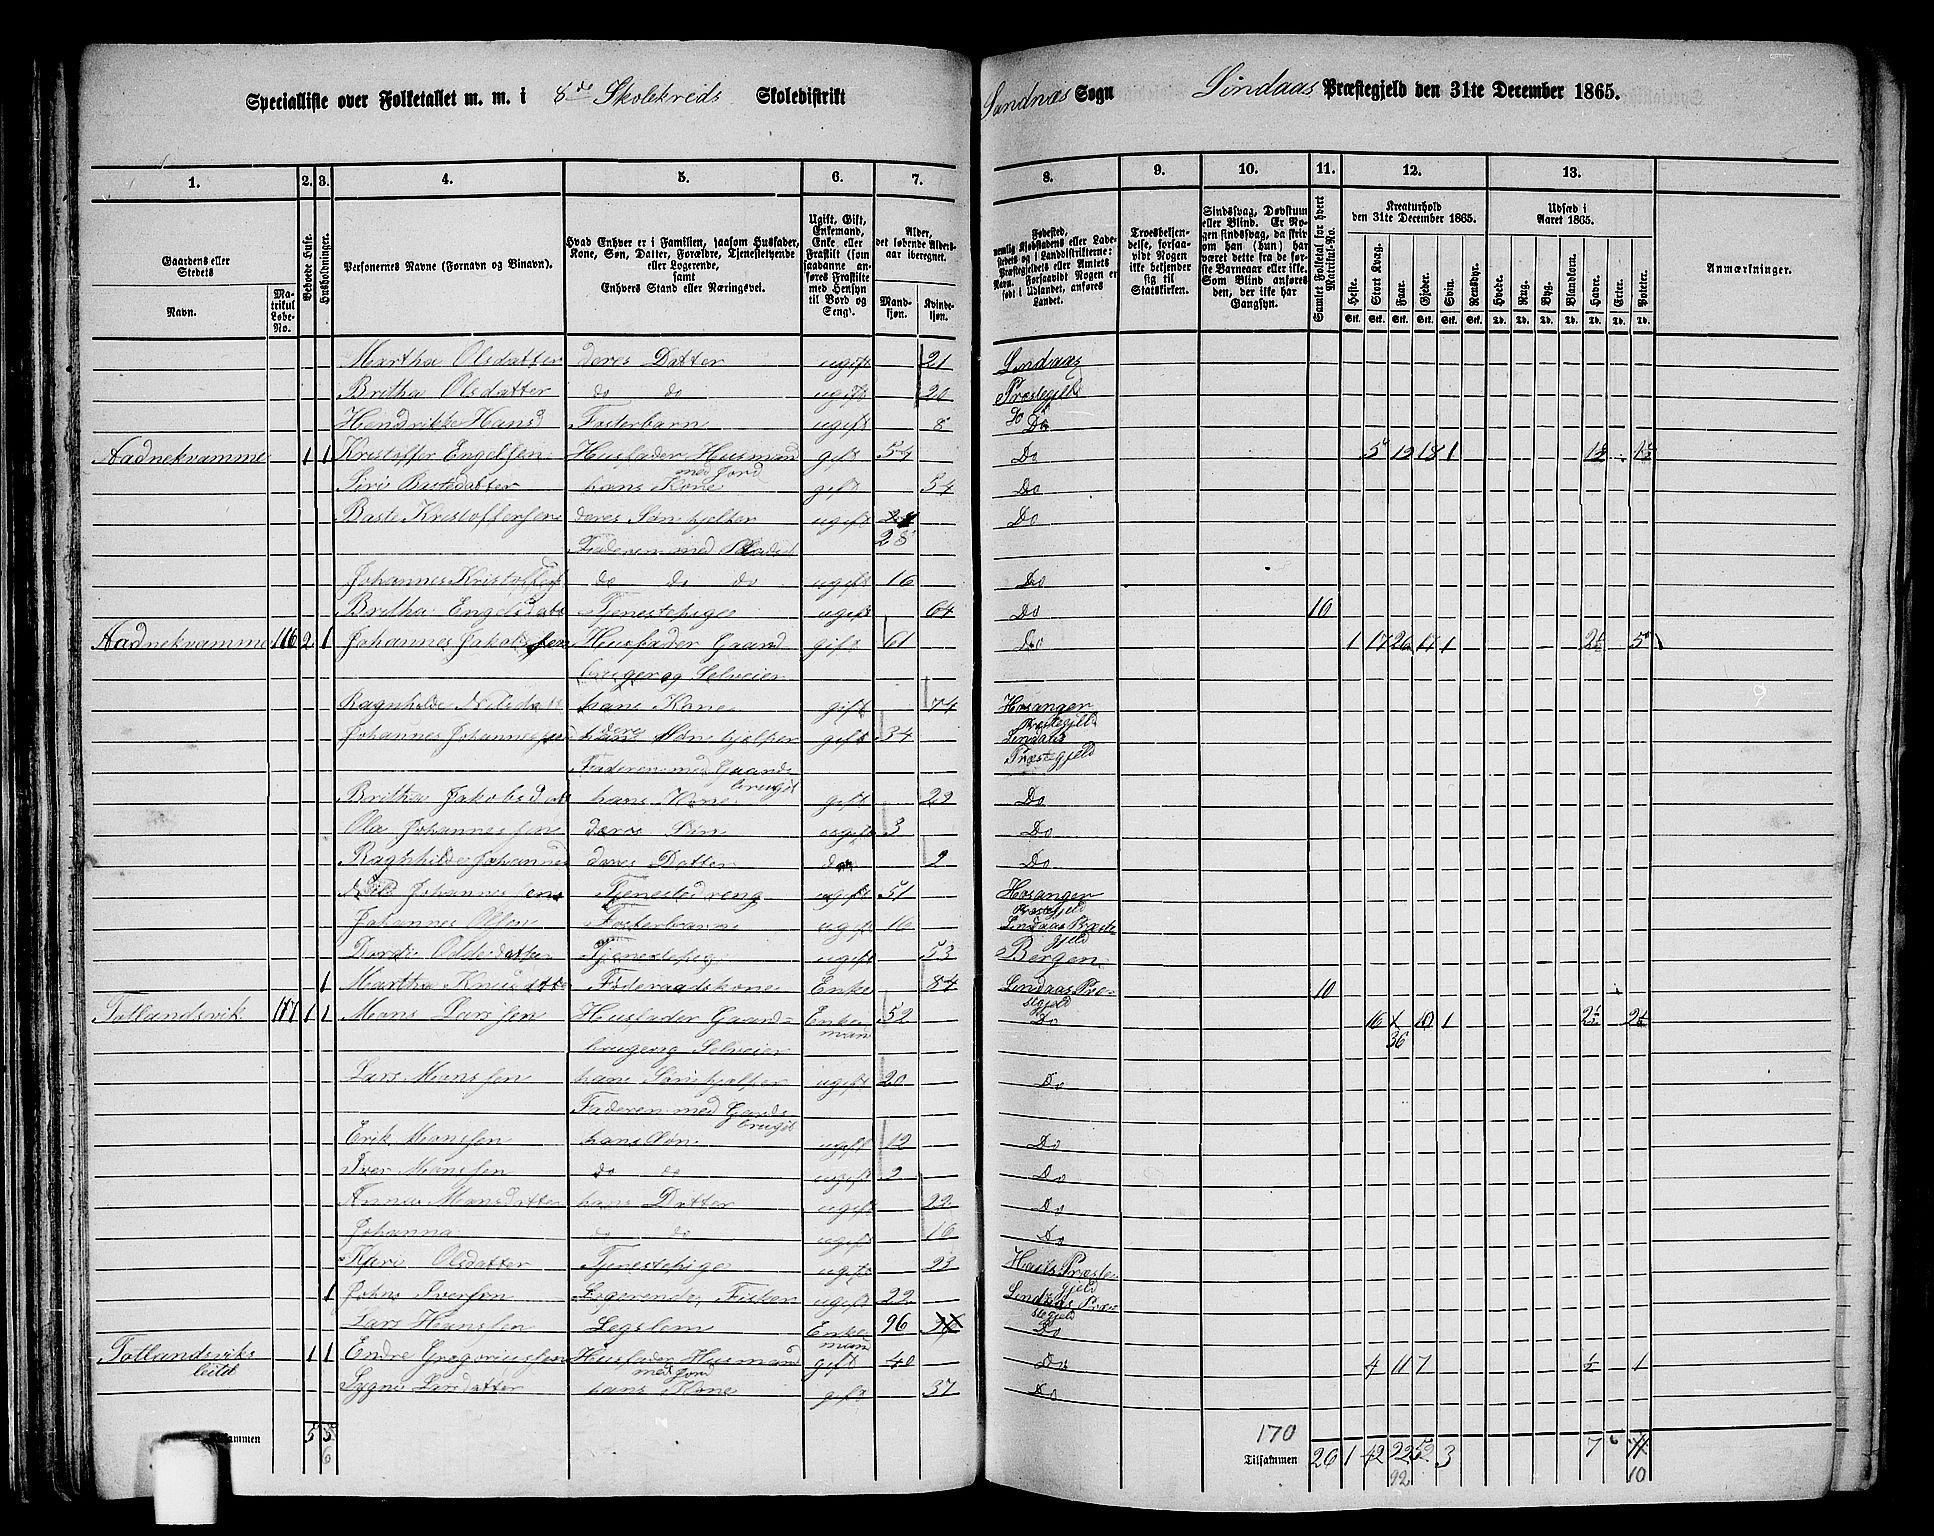 Specialliste over Folketallet m. m. i 8de Skolekreds Skoledistrikt
Sandnæs Sogn Lindaas Præstegjeld den 31te December 1865.
1. 2. 3. 4. 5. 6. 7. 8. 9. 10. 11. 12. 13.
Gaardens eller Stedets
Navn.
Matrikul Løbe-No.
Beboede Huse.
Husholdninger.
Personernes Navne (Fornavn og Binavn).
Hvad Enhver er i Familien, saasom Husfader, Kone, Søn, Datter, Forældre, Tjenestetyende eller Logerende,
samt
Enhvers Stand eller Næringsvei.
Ugift, Gift, Enkemand, Enke eller Fraskilt (som saadanne anføres Fraskilte med Hensyn til Bord og Seng).
Alder, det løbende Aldersaar iberegnet.
Mandkjøn. Kvindekjøn.
Fødested,
nemlig Kjøbstadens eller Ladestedets og i Landdistrikterne: Præstegjeldets eller Amtets Navn. Forsaavidt Nogen er født i Udlandet, anføres Landet.
Troesbekjendelse, forsaavidt Nogen ikke bekjender sig til Statskirken.
Sindssvag, Døvstum eller Blind. Er Nogen sindssvag, da skrives om han (hun) har været dette fra de første Barneaar eller ikke. Som Blind anføres den, der ikke har Gangsyn.
Samlet Folketal for hvert Matrikul-No.
Kreaturhold den 31te December 1865.
Heste. Stort Kvæg. Faar. Gjeder. Svin. Rensdyr.
Udsæd i Aaret 1865.
Hvede. Rug. Byg. Blandkorn. Havre. Erter. Poteter.
Anmærkninger.
Martha Olsdatter deres Datter ugift 21 Lindaas
Britha Olsdatter do do ugift 20 Præstegjeld
Hendrikke Hansd Fosterbarn ugift 8 Do
Aadnekvamme 1 1 Kristoffer Engelsen Husfader Husmand gift 54 Do 5 12 18 1
med Jord
Siri Bastedatter hans Kone gift 54 Do
Baste Kristoffersen deres Søn hjelper ugift Do
28
Faderen med
Johannes Kristoffers do do do ugift 16 Do
Britha Engelsdatt Tjenestepige ugift 64 Do 10
Aadnekvamme 116 2 1 Johannes Jakobssen Husfader Gaard gift 61 Do 1 17 26 14 1 5
bruger og Selveier
Ragnhilde Nilsdatt hans Kone gift 74 Hosanger
Præstegjeld
Johannes Johannessen deres Søn hjelper gift 34 Lindaas
Faderen med Gaards Præstegjeld
brugit
Britha Jakobsdatt hans Kone gift 22 Do
Ole Johannessen deres Søn ugift 3 Do
Ragnhilde Johannes deres Datter do 2 Do
Nils Johannessen Tjenestedreng ugift 51 Hosanger
Præstegjeld
Johannes Olsen Fosterbarn ugift 16 Lindaas Præste
gjeld
Dordi Oddesdatter Tjenestepige ugift 53 Bergen
1 Martha Knudsdatter Føderaadskone Enke 84 Lindaas Præ- 10
stegjeld
Totlandsvik 117 1 1 Mons Larssen Husfader Gaard- Enke 52 Do 16 10 1
mand 36
bruger og Selveier
Lars Monssen hans Søn hjelper ugift 20 Do
Faderen med Gards
brugit
Erik Monssen hans Søn ugift 12 Do
Iver Monssen do do ugift 2 Do
Anna Monsdatter hans Datter ugift 22 Do
Johanna do do ugift 16 Do
Kari Olsdatter Tjenestepige ugift 23 Hauls Præste
gjeld
1 Johns Iverson Logerende, Fisker ugift 22 Lindaas Præ
stegjeld
Lars Hanssen Legslem Enke 96 Do
mand
Totlandsviks 1 1 Endre Gregoriussen Husfader Husmand gift 40 Do 4 11 7 ½ 1
leitet med Jord
Sygni Larsdatter hans Kone gift 37 Do
5 5 170
6
Tilsammen 26 1 42 92 52 3 7 11
92 10